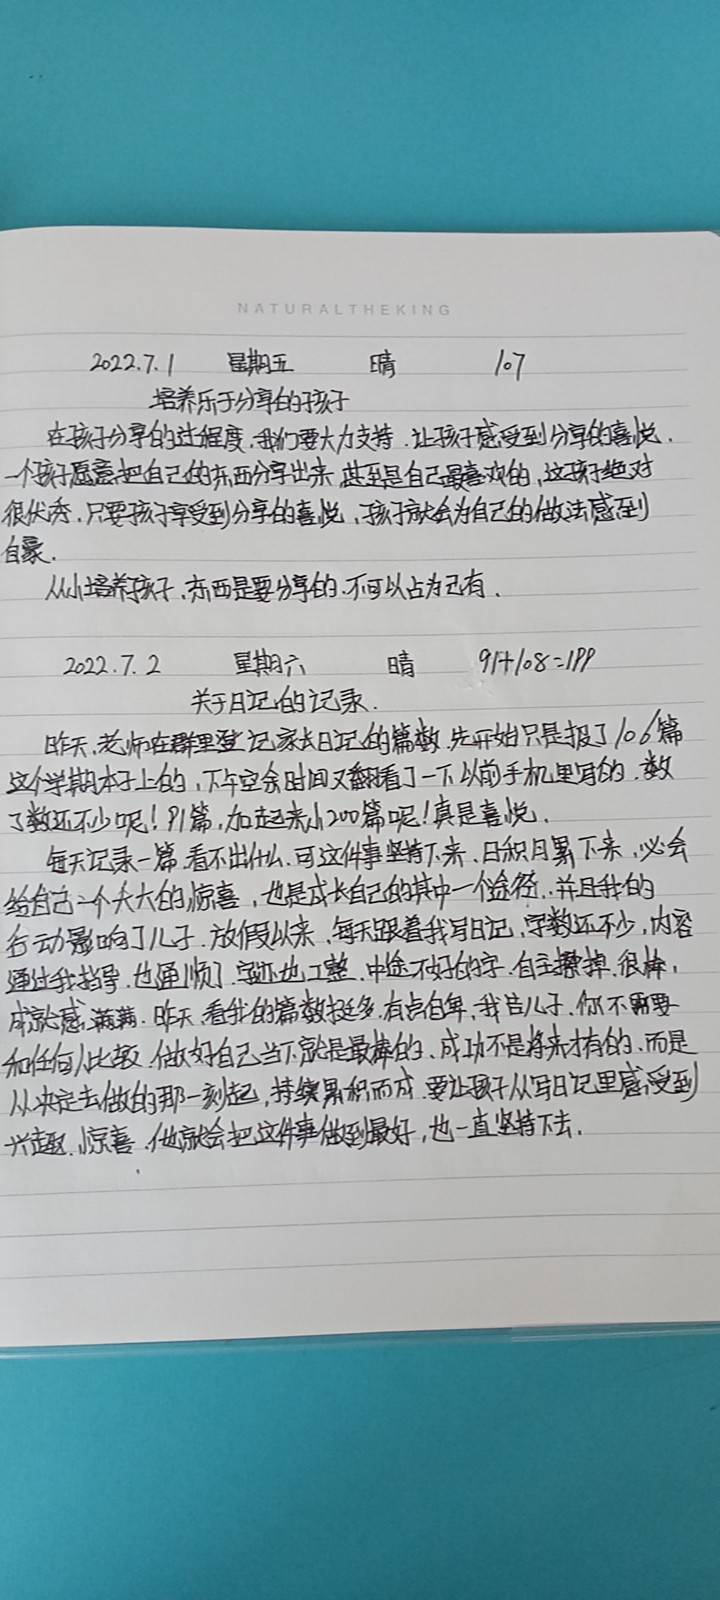 NATURALTHEKING
2022.7.1 星期五 晴 107
培养乐于分享的孩子
在孩子分享的过程度,我们要大力支持.让孩子感受到分享的喜悦.
一个孩子愿意把自己的东西分享出来,甚至是自己最喜欢的,这孩子绝对
很优秀.只要孩子享受到分享的喜悦,孩子就会为自己的做法感到
自豪.
从小培养孩子,东西是要分享的.不可以占为己有.
2022.7.2 星期六 晴 91+108=199
关于日记的记录.
昨天,老师在群里登记家长日记的篇数.先开始只是报了106篇
这个学期本子上的,下午空余时间又翻看了一下以前手机里写的.数
了数还不少呢!91篇,加起来小200篇呢!真是喜悦.
每天记录一篇.看不出什么.可这件事坚持下来.日积月累下来,必会
给自己一个大大的惊喜,也是成长自己的其中一个途径.并且我的
行动影响了儿子.放假以来,每天跟着我写日记,字数还不少,内容
通过我指导.也通顺了.字迹也工整.中途不好的字.自主擦掉.很棒,
成就感满满.昨天,看我的篇数挺多.有点自卑,我告儿子.你不需要
和任何人比较.做好自己当下就是最棒的.成功不是将来才有的.而是
从决定去做的那一刻起,持续累积而成.要让孩子从写日记里感受到
兴趣.惊喜.他就会把这件事做到最好,也一直坚持下去.